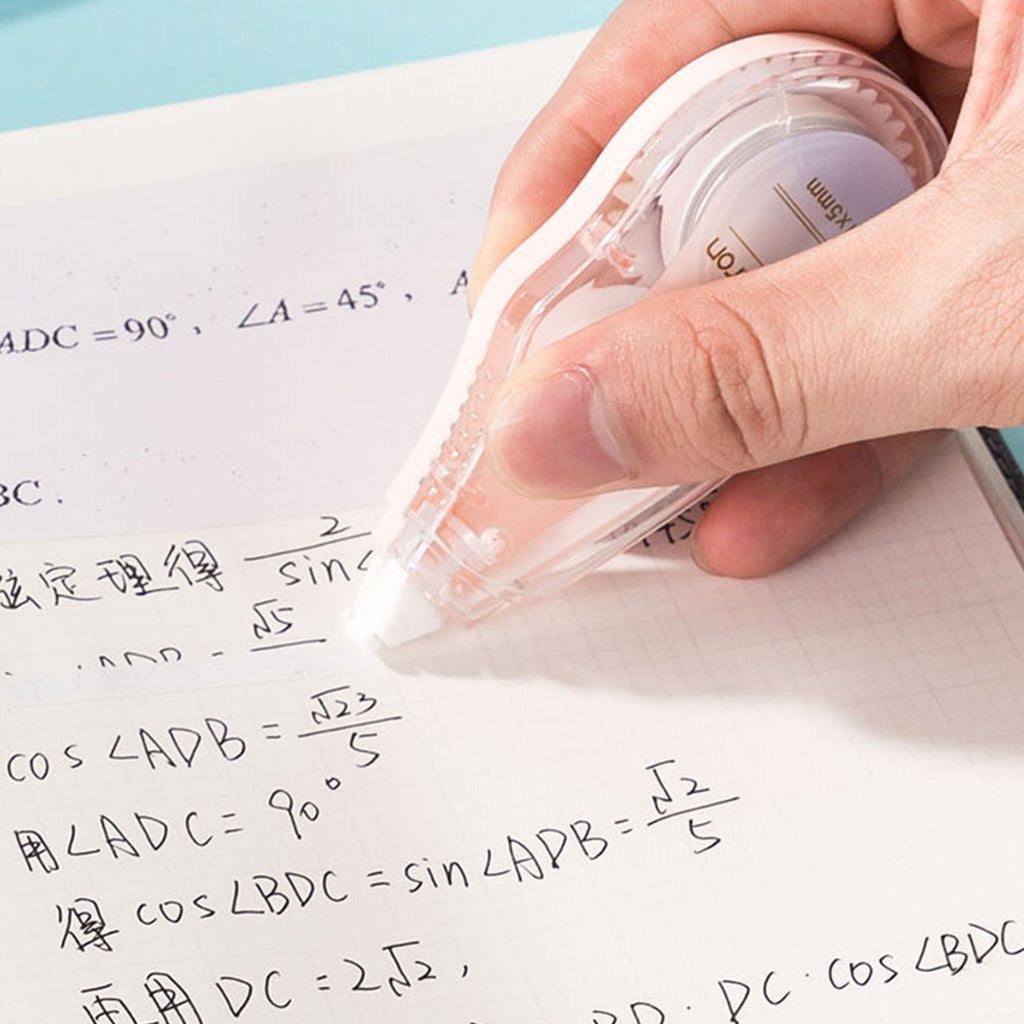 ADC = 90°, ∠A = 45°,
BC.
弦定理得 2/sin∠
√5
cos∠ADB = √23/5
用∠ADC = 90°
得 cos∠BDC = sin∠ADB = √2/5
再用 DC = 2√2,
BD · DC · cos∠BDC
x5mm
ron